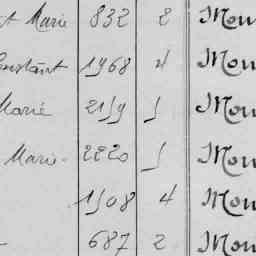 Marie 832 2 Mou
Constant 1968 4 Mou
Marie 2159 5 Mou
Marie 2220 5 Mou
1508 4 Mou
687 2 Mou